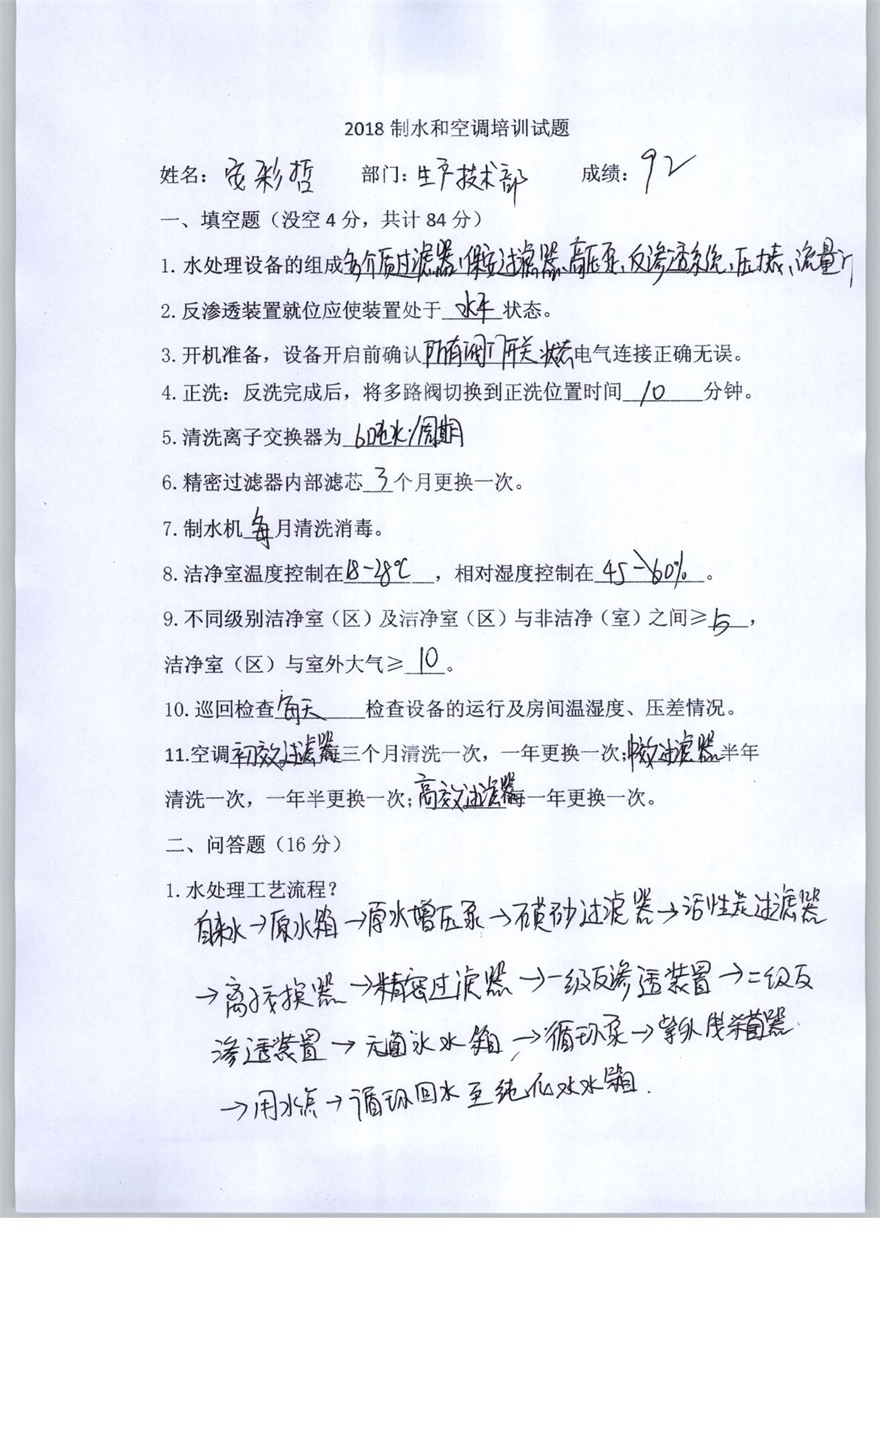 2018 制水和空调培训试题
姓名：安彩哲 部门：生产技术部 成绩：92
一、填空题（没空 4 分，共计 84 分）
1. 水处理设备的组成多介质过滤器、保安过滤器、高压泵、反渗透系统、压力表、流量计
2. 反渗透装置就位应使装置处于 水平 状态。
3. 开机准备，设备开启前确认所有阀门开关状态电气连接正确无误。
4. 正洗：反洗完成后，将多路阀切换到正洗位置时间 10 分钟。
5. 清洗离子交换器为 60吨水/周期
6. 精密过滤器内部滤芯 3 个月更换一次。
7. 制水机 每 月清洗消毒。
8. 洁净室温度控制在18-28℃，相对湿度控制在 45-60% 。
9. 不同级别洁净室（区）及洁净室（区）与非洁净（室）之间≥ 5 ，
洁净室（区）与室外大气≥ 10 。
10. 巡回检查 每天 检查设备的运行及房间温湿度、压差情况。
11.空调初效过滤器每三个月清洗一次，一年更换一次；中效过滤器半年
清洗一次，一年半更换一次；高效过滤器每一年更换一次。
二、问答题（16 分）
1. 水处理工艺流程？
自来水→原水箱→原水增压泵→石英砂过滤器→活性炭过滤器
→离子交换器→精密过滤器→一级反渗透装置→二级反
渗透装置→无菌水箱→循环泵→紫外线杀菌器
→用水点→循环回水至纯化水水箱.